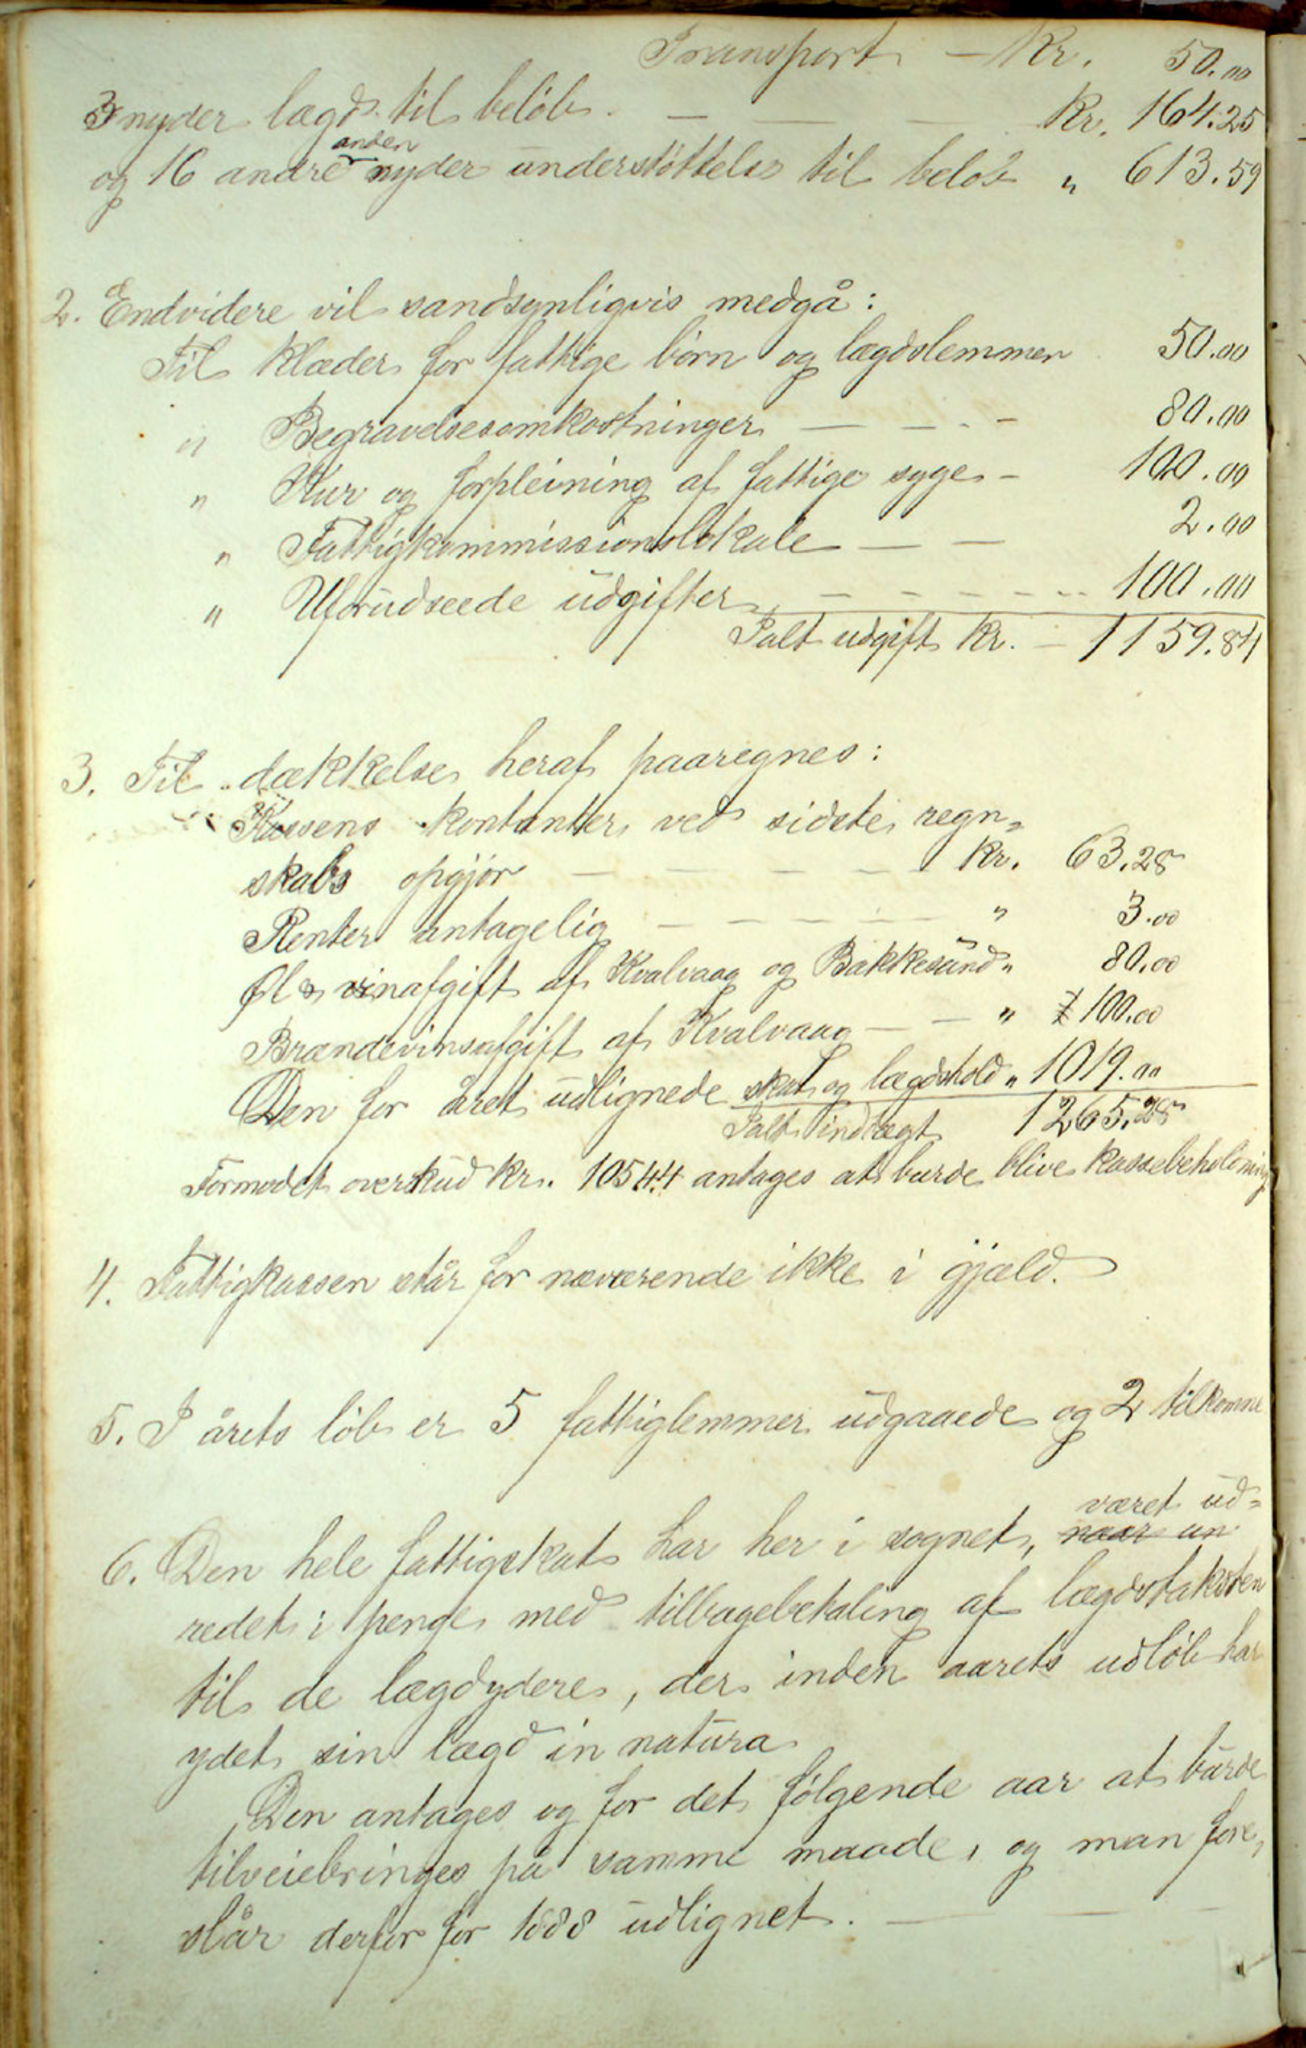 Transport – Kr. 50.00
3 nyder lægd til beløb. – – – Kr. 164.25
og 16 andre anden nyder understøttelse til beløb " 613.59
2. Endvidere vil sandsynligvis medgå:
Til klæder for fattige børn og lægdslemmer 50.00
" Begravelsesomkostninger – – – 80.00
" Kur og forpleining af fattige syge – 100.00
" Fattigkommissionslokale – – 2.00
" Uforudseede udgifter – – – – – 100.00
Ialt udgift Kr. – 1159.84
3. Til dækkelse heraf paaregnes:
Kassens kontanter ved sidste regn-
skabs opgjør – – – – Kr. 63.28
Renter antagelig – – – – – " 3.00
Øl & vinafgift af Kvalvaag og Bakkesund " 80.00
Brændevinsafgift af Kvalvaag – – " 100.00
Den for året udlignede skat og lægdshold " 1019.00
Ialt indtægt 1265.28
Formodet overskud kr. 105.44 antages at burde blive kassebeholdning
4. Fattigkassen står for nærværende ikke i gjæld.
5. I årets løb er 5 fattiglemmer udgaaede og 2 tilkomne
6. Den hele fattigskat har her i sognet, naar un været ud-
redet i penge med tilbagebetaling af lægdstaksten
til de lægdydere, der inden aarets udløb har
ydet sin lægd in natura
Den antages og for det følgende aar at burde
tilveiebringes på samme maade, og man fore-
slår derfor for 1888 udlignet. –